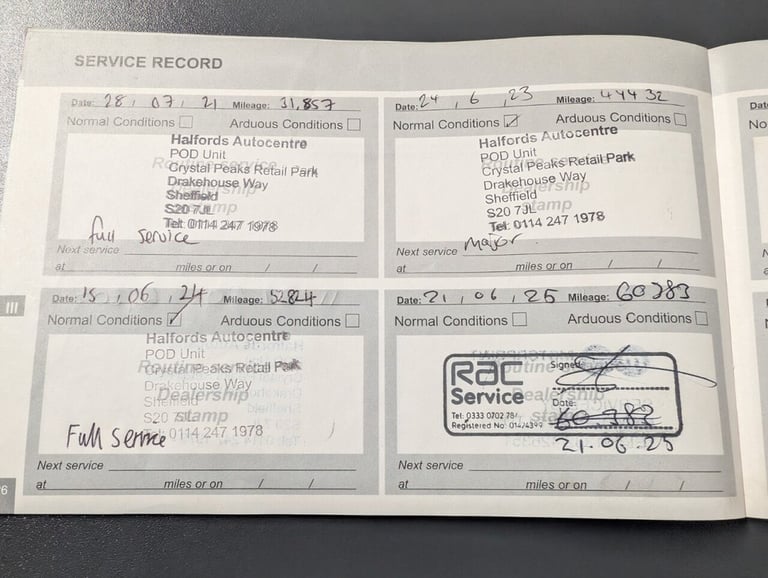 SERVICE RECORD
Date: 28 / 07 / 21 Mileage: 31,857
Normal Conditions Arduous Conditions
Halfords Autocentre
POD Unit
Crystal Peaks Retail Park
Drakehouse Way
Sheffield
S20 7JL
Tel: 0114 247 1978
full service
Next service
at miles or on / /
Date: 24 / 6 / 23 Mileage: 44432
Normal Conditions Arduous Conditions
Halfords Autocentre
POD Unit
Crystal Peaks Retail Park
Drakehouse Way
Sheffield
S20 7JL
Tel: 0114 247 1978
Major
Next service
at miles or on / /
III
Date: 15 / 06 / 24 Mileage: 52824
Normal Conditions Arduous Conditions
Halfords Autocentre
POD Unit
Crystal Peaks Retail Park
Drakehouse Way
Sheffield
S20
Tel: 0114 247 1978
Routine service
Dealership
stamp
Full Service
Next service
at miles or on / /
Date: 21 / 06 / 25 Mileage: 60383
Normal Conditions Arduous Conditions
RAC
Service
Signed
Date:
Tel: 0333 0702
Registered No:
21.06.25
Next service
at miles or on / /